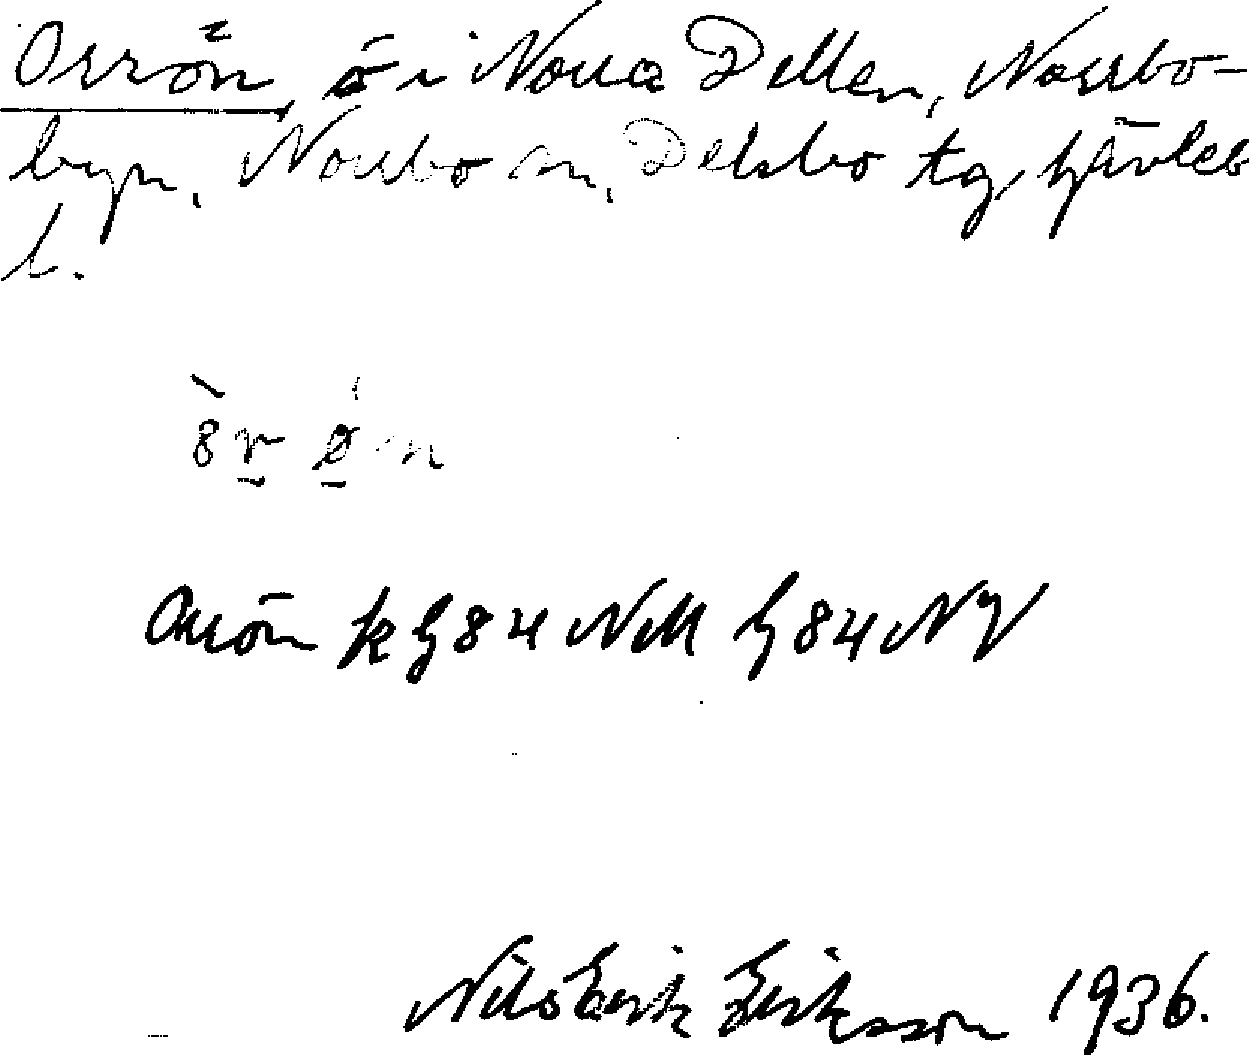 Orrön, ö i Norra Dellen, Norrbo-
byn, Norrbo sn, Delsbo tg, Gävleb
l.
Orrön k G 84 NM G 84 NV
Nils Erik Eriksson 1936.